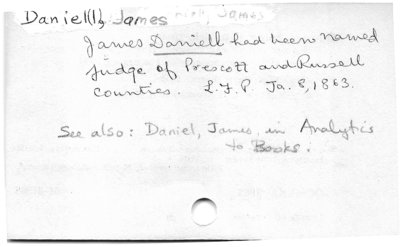 Daniel(l), James
James Daniell had been named
judge of Prescott and Russell
counties. L.F.P. Ja. 8, 1863.
See also: Daniel, James, in Analytics
to Books.